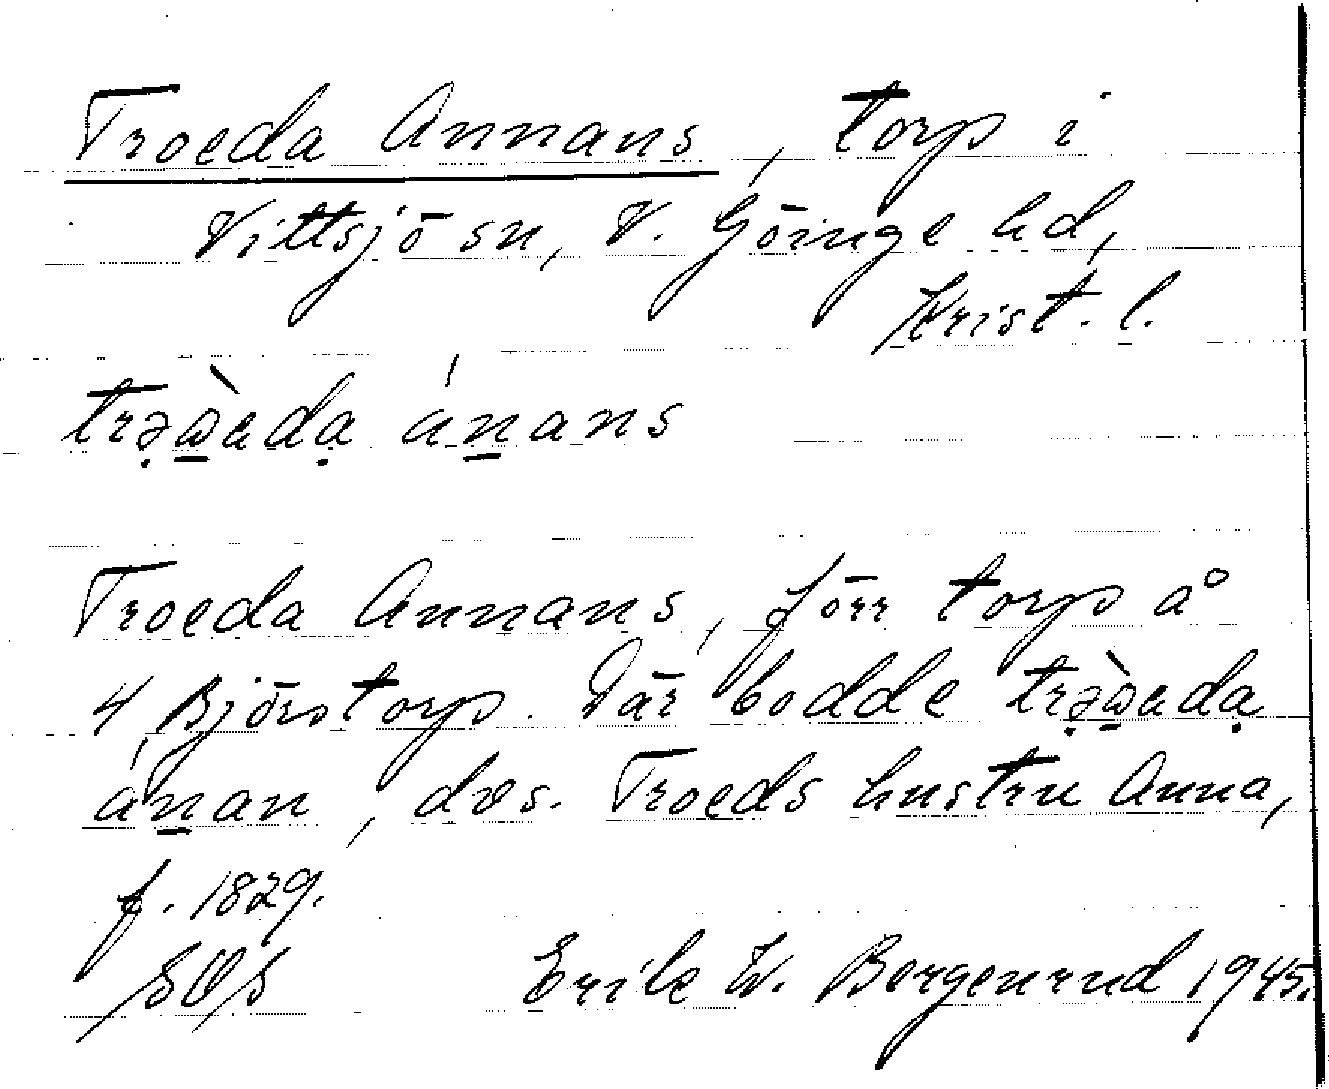 Troeda Annans, torp i
Vittsjö sn, V. Göinge hd,
Krist. l.
trə̣ωàdạ ánans
Troeda Annans, förr torp å
4 Björstorp. Där bodde trə̣ωàdạ
ánan, dvs. Troeds hustru Anna,
f. 1829.
SOS Erik W. Bergenrud 1945.